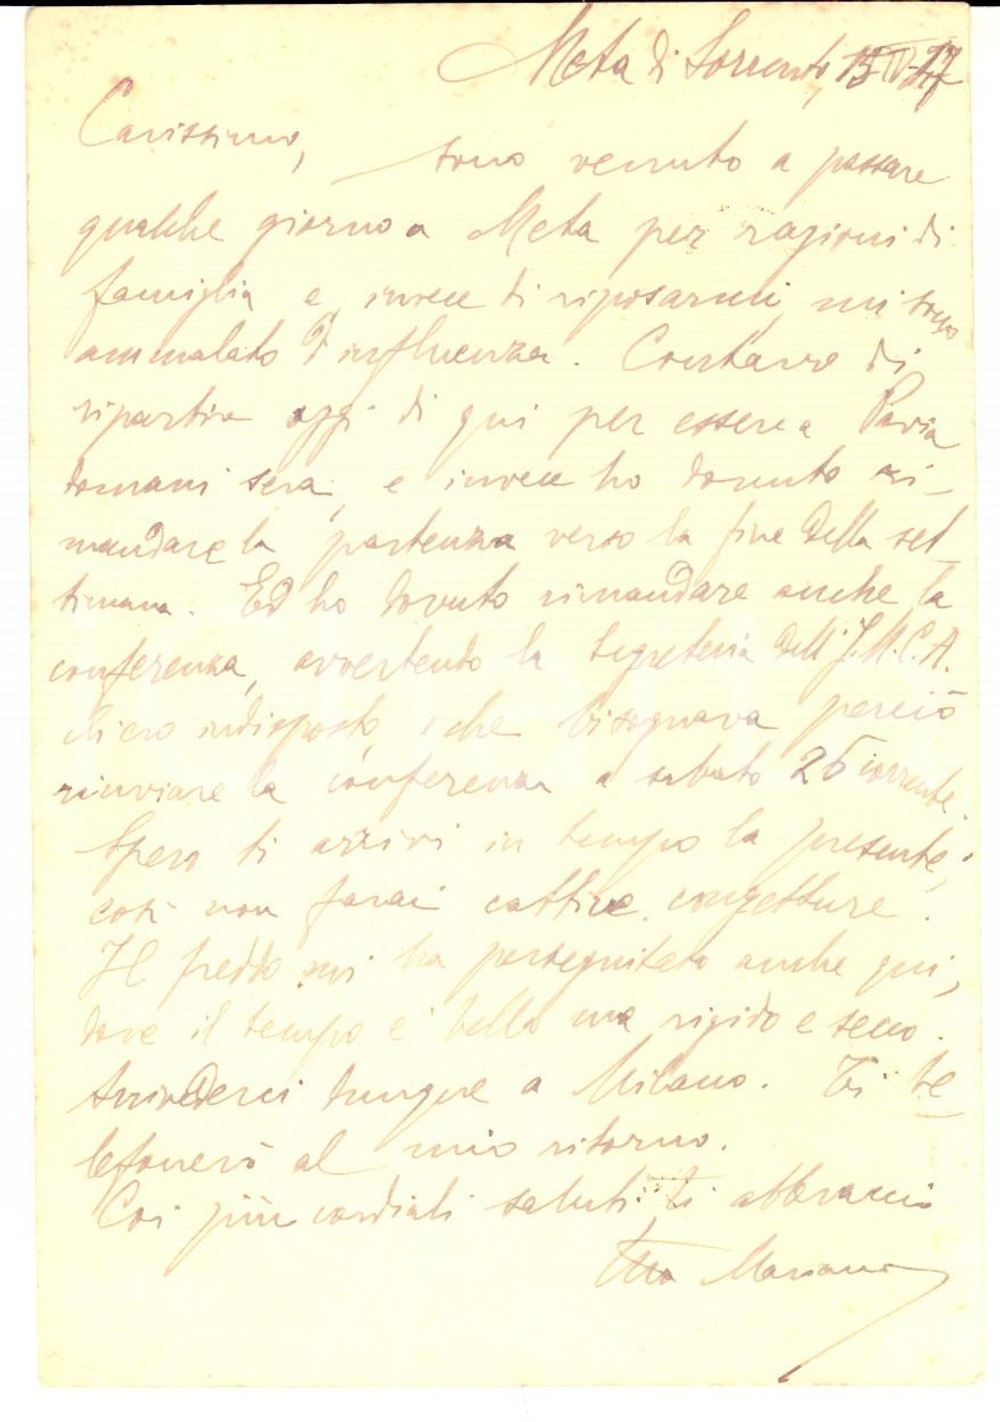 Meta di Sorrento, 15
Carissimo, sono venuto a passare
qualche giorno a Meta per ragioni di
famiglia e, invece di riposarmi, mi sono
ammalato d'influenza. Contavo di
ripartire oggi di qui per essere a Pavia
domani sera, e invece ho dovuto ri-
mandare la partenza verso la fine della set-
timana. Ed ho dovuto rimandare anche la
conferenza, avvertendo la segreteria dell'
ch'ero indisposto, e che bisognava perciò
rinviare la conferenza a sabato 26 corrente.
Spero ti arrivi in tempo la presente;
così non farai cattive congetture.
Il freddo mi ha perseguitato anche qui,
dove il tempo è bello ma rigido e secco.
Arrivederci dunque a Milano. Ti te-
lefonerò al mio ritorno.
Coi più cordiali saluti, ti abbraccio
Mariano